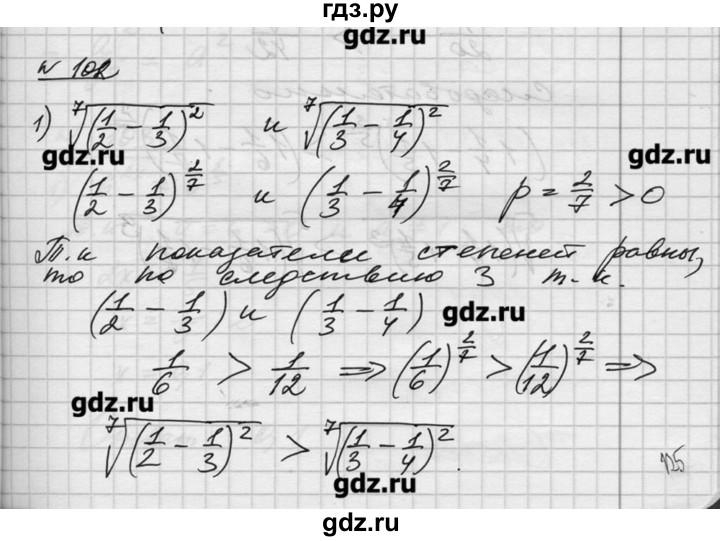 гдз.ру
gdz.ru
N 102
1) ⁷√(1/2 − 1/3)² и ⁷√(1/3 − 1/4)²
gdz.ru gdz.ru
(1/2 − 1/3)^(2/7) и (1/3 − 1/4)^(2/7) p = 2/7 > 0
Т.к показатели степеней равны,
то по следствию 3 т.к.
(1/2 − 1/3) и (1/3 − 1/4) gdz.ru
1/6 > 1/12 => (1/6)^(2/7) > (1/12)^(2/7) =>
gdz.ru
⁷√(1/2 − 1/3)² > ⁷√(1/3 − 1/4)².
gdz.ru
gdz.ru